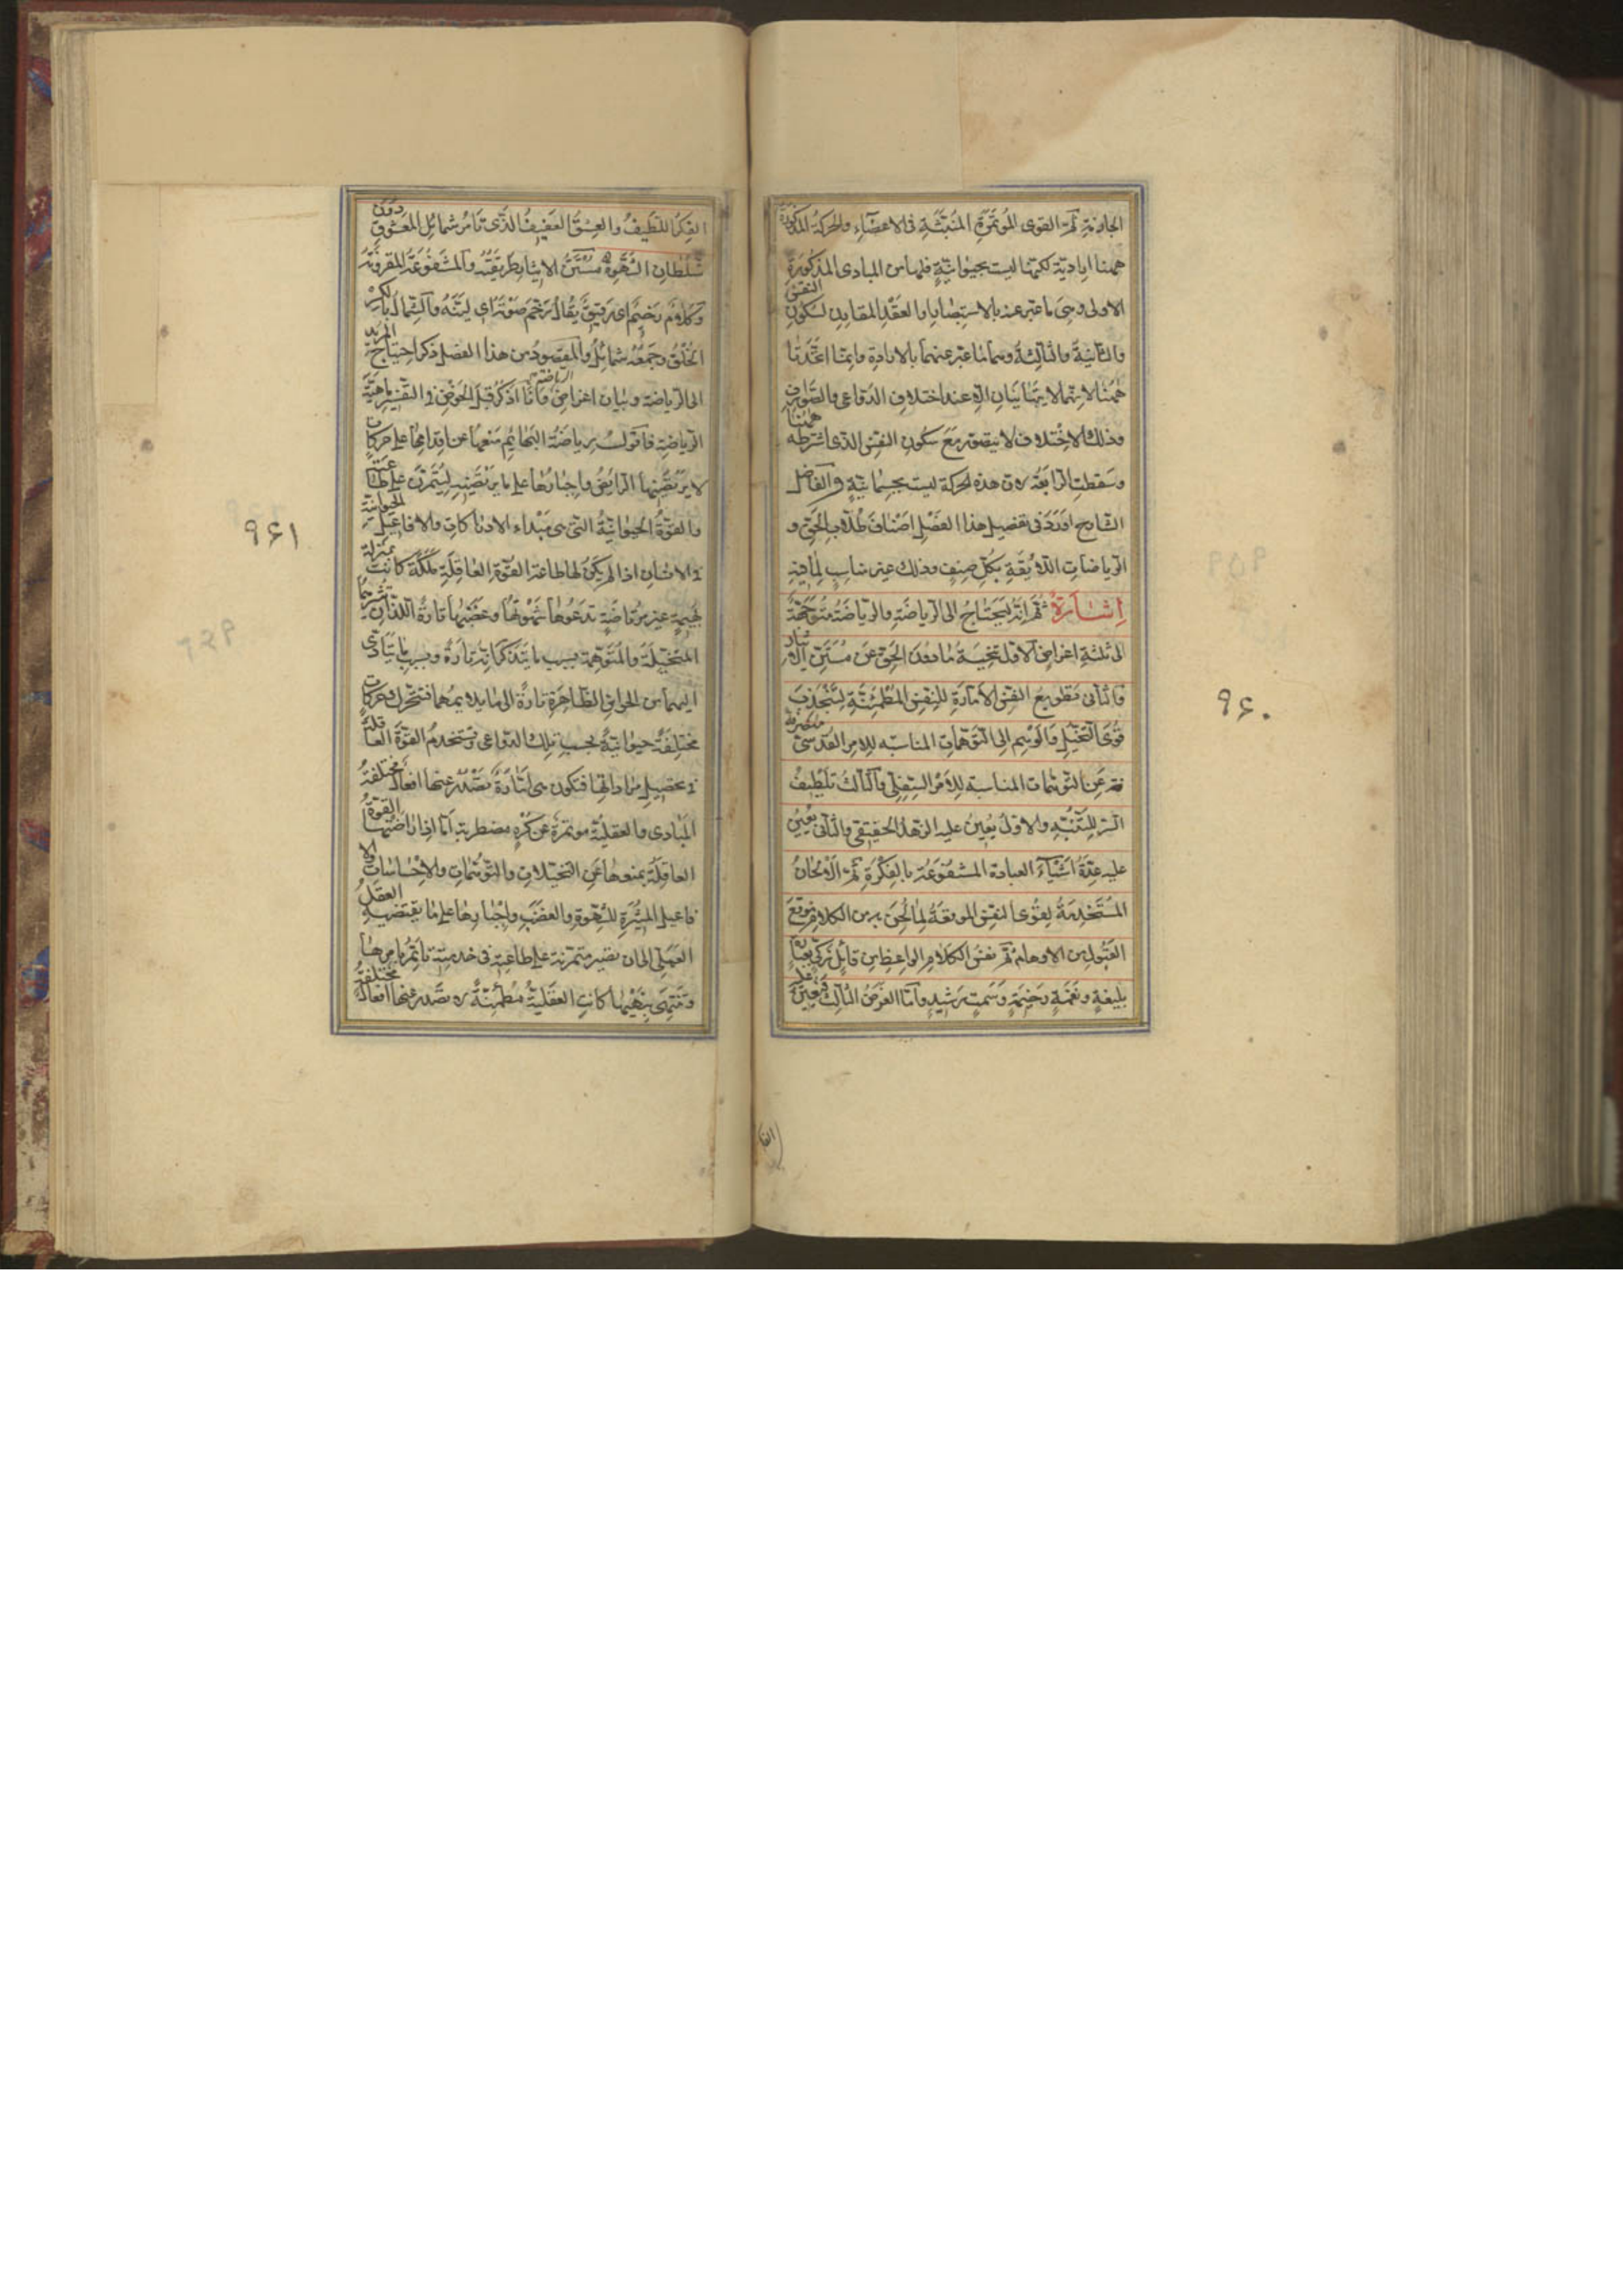 الجازمة ثم القوى المؤتمرة المنبثة في الاعضاء والحركة المذكورة
ههنا ارادية لكنها ليست بحيوانية فلها من المبادى المذكورة
الاولى وهى ما عبر عنه بالاستبصار والعقد المقارن لسكون النفس
والثانية والثالثة وهما ما عبر عنهما بالارادة وانما اتحدتا
ههنا لانهما لا يتباينان الا عند اختلاف الدواعى والصوارف
وذلك الاختلاف لا يتصور مع سكون النفس الذى اشترطه ههنا
وسقطت الرابعة لان هذه الحركة ليست بجسمانية والفاضل
الشارح اورد فى تفصيل هذا الفصل اصناف طلاب الحق و
الرياضات اللائقة بكل صنف وذلك غير مناسب لما فيه
اشارة ثم انه ليحتاج الى الرياضة والرياضة متوجهة
الى ثلثة اغراض الاول تنحية ما دون الحق عن مستن الايثار
والثانى تطويع النفس الامارة للنفس المطمئنة لتنجذب
قوى التخيل والوهم الى التوهمات المناسبه للامر القدسى منصرفة
عن التوهمات المناسبه للامر السفلى والثالث تلطيف
السر للتنبه والاول يعين عليه الزهد الحقيقى والثانى يعين
عليه عدة اشياء العبادة المشفوعة بالفكرة ثم الالحان
المستخدمة لقوى النفس الموقعة لما لحن به من الكلام موقع
القبول من الاوهام ثم نفس الكلام الواعظ من قائل زكى بعبارة
بليغة ونغمة رخيمة وسمت رشيد واما الغرض الثالث فيعين عليه
الفكر اللطيف والعشق العفيف الذى تامر شمائل المعشوق دون
سلطان الشهوة مستن الايثار طريقته والمشفوعة المقرونة
وكلام رخيم اى رقيق يقال رخم صوته اى لينه والشمال بالكسر
الخلق وجمعه شمائل والمقصود من هذا الفصل ذكر احتياج المريد
الى الرياضة وبيان اغراض الرياضة وانا اذكر قبل الخوض فى التفسير ماهية
الرياضة فاقول رياضة البهائم منعها عن اقدامها على حركات
لا يرتضيها الرايض واجبارها على ما يرتضيه لتتمرن على طاعته
والقوة الحيوانية التى هى مبداء الادراكات والافاعيل الحيوانية
فى الانسان اذا لم يكن لها طاعة القوة العاقلة ملكة كانت بمنزلة
بهيمة غير مرتاضة تدعوها شهوتها وغضبها تارة اللذان تثيرهما
المتخيلة والمتوهمة بسبب ما يتذكرانه تارة وبسبب ما يتادى
اليهما من الحواس الظاهرة تارة الى ما يلايمهما فتتحرك حركات
مختلفة حيوانية بحسب تلك الدواعى وتستخدم القوة العاقلة
فى تحصيل مراداتها فتكون هى امارة تصدر عنها افعال مختلفة
المبادى والعقلية موتمرة عن كره مضطربة اما اذا راضتها القوة
العاقلة بمنعها عن التخيلات والتوهمات والاحساسات والا
فاعيل المثيرة للشهوة والغضب واجبارها على ما يقتضيه العقل
العملى الى ان تصير متمرنة على طاعته فى خدمته تاتمر بامرها
وتنتهى بنهيها كانت العقلية مطمئنة لا تصدر عنها افعال مختلفة
٩٦٠
٩٦١